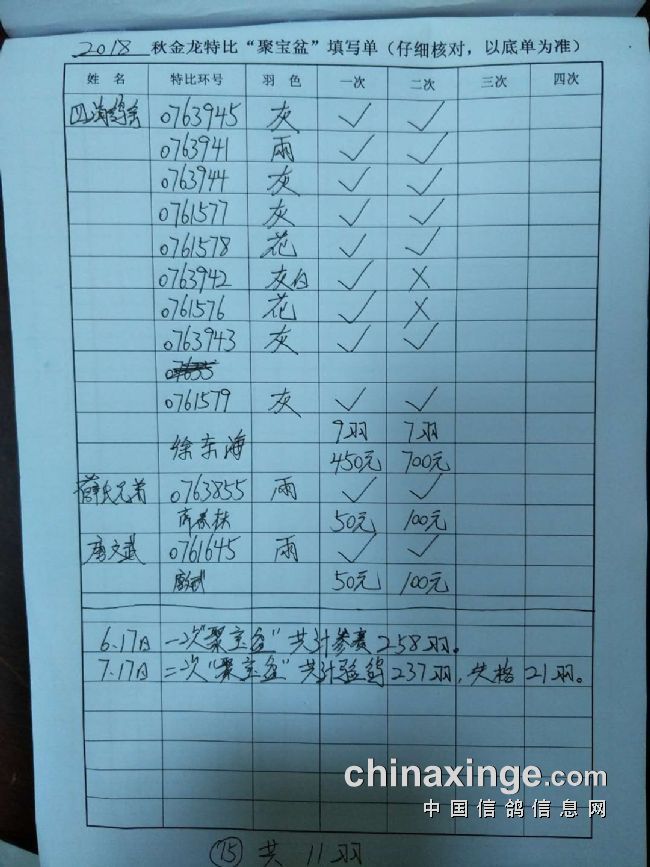 2018 秋金龙特比“聚宝盆”填写单（仔细核对，以底单为准）
姓 名 特比环号 羽 色 一次 二次 三次 四次
0763945 灰 ✓ ✓
0763941 雨 ✓ ✓
0763944 灰 ✓ ✓
0761577 灰 ✓ ✓
0761578 花 ✓ ✓
0763942 灰白 ✓ ×
0761576 花 ✓ ×
0763943 灰 ✓ ✓
0761579 灰 ✓ ✓
9羽 7羽
徐东海 450元 700元
薛氏兄弟 0763855 雨 ✓ ✓
50元 100元
唐文武 0761645 雨 ✓ ✓
50元 100元
6.17日 一次“聚宝盆”共计参赛258羽。
7.17日 二次“聚宝盆”共计验鸽237羽，失格21羽。
chinaxinge.com
中国信鸽信息网
⑮ 共 11羽